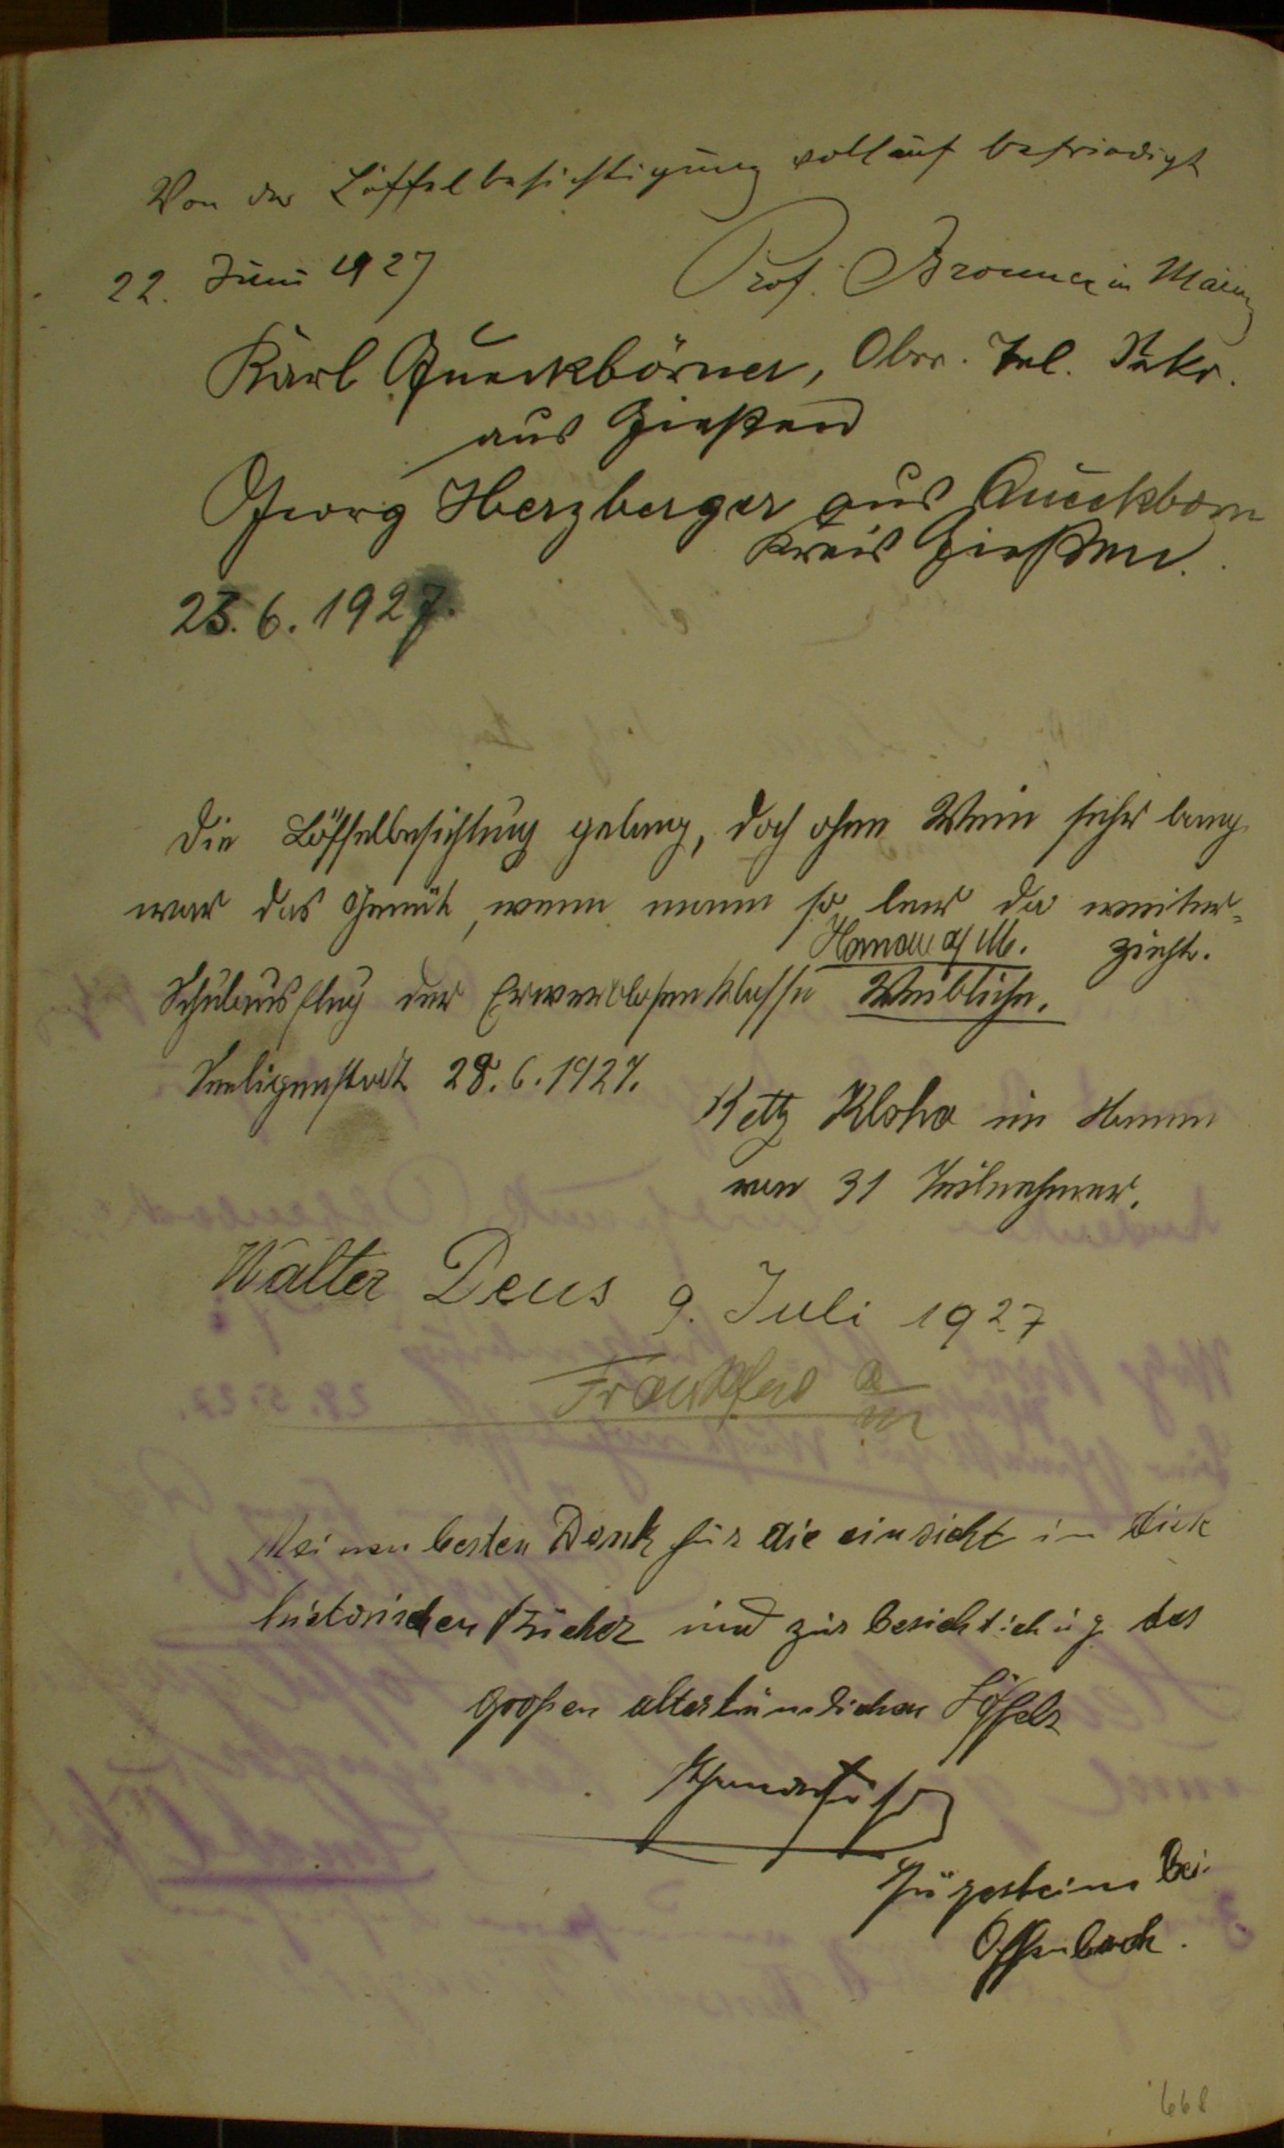 Von der Löffelbesichtigung vollauf befriedigt
22. Juni 1927 Prof. in Mainz
Karl Queckbörner, Ober. Tel. Sekr.
aus Gießen
Georg Herzberger aus Queckborn
Kreis Gießen.
23.6.1927.
Die Löffelbesichtung gelang, doch ohne Wein sehr lang
war das Gemüt, wenn mann so leer da weiter-
zieht.
Hanau a/M.
Schulausflug der Erwerblosenklasse Weibliche.
Seeligenstadt 28.6.1927.
im Namen
von 31 Teilnehmer.
Walter Deus 9. Juli 1927
Frankfurt a/M
Meinen besten Dank für die einsicht in die
historischen Bücher und zur besichtichug des
großen altertümlichen Löffels
Jügesheim bei
Offenbach.
668